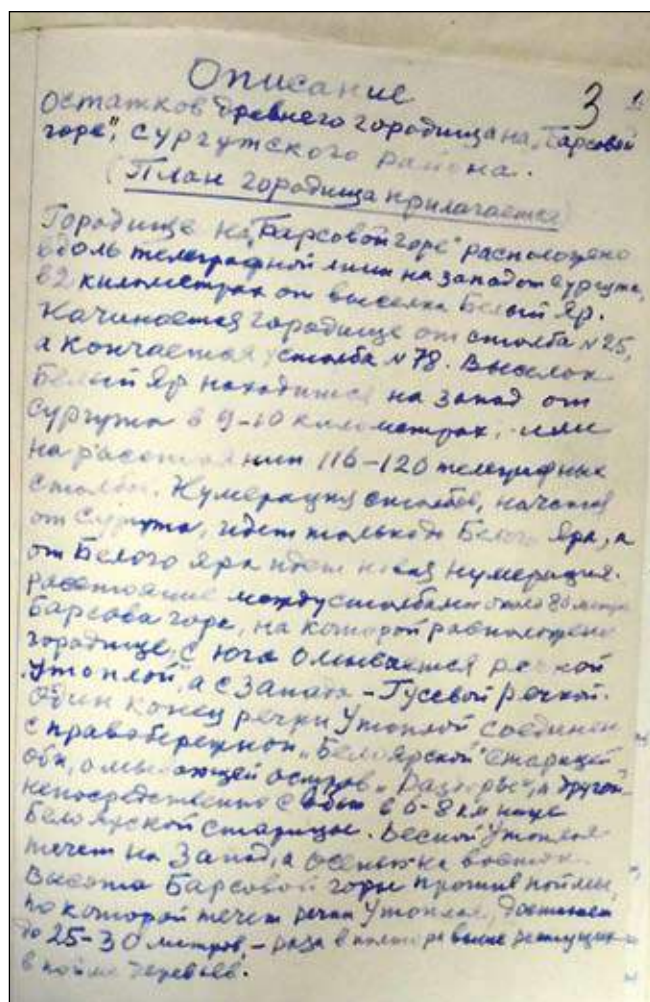 Описание
3 1
Остатков древнего городища на „Барсовой
горе", Сургутского района.
(План городища прилагается)
Городище на „Барсовой горе" расположено
вдоль телеграфной линии на запад от Сургута,
в 2 километрах от выселка Белый Яр.
Начинается городище от столба №25,
а кончается у столба №78. Выселок
Белый Яр находится на запад от
Сургута в 9-10 километрах, или
на расстоянии 116-120 телеграфных
столбов. Нумерация столбов, начатая
от Сургута, идет только до Белого Яра, а
от Белого Яра идет новая нумерация.
Расстояние между столбами около 80 метр.
Барсова гора, на которой расположено
городище, с юга омывается речкой
„Утоплой", а с запада - Гусевой речкой.
Один конец речки Утоплой соединен
с правобережной „Белоярской" старицей
Оби, омывающей остров „ ", а другой
непосредственно с Обью в 6-8 км ниже
Белоярской старицы. Весной Утоплая
течет на запад, а осенью на восток.
Высота Барсовой горы против поймы,
по которой течет речка Утоплая, достигает
до 25-30 метров, - раза в полтора выше растущих
в пойме деревьев.